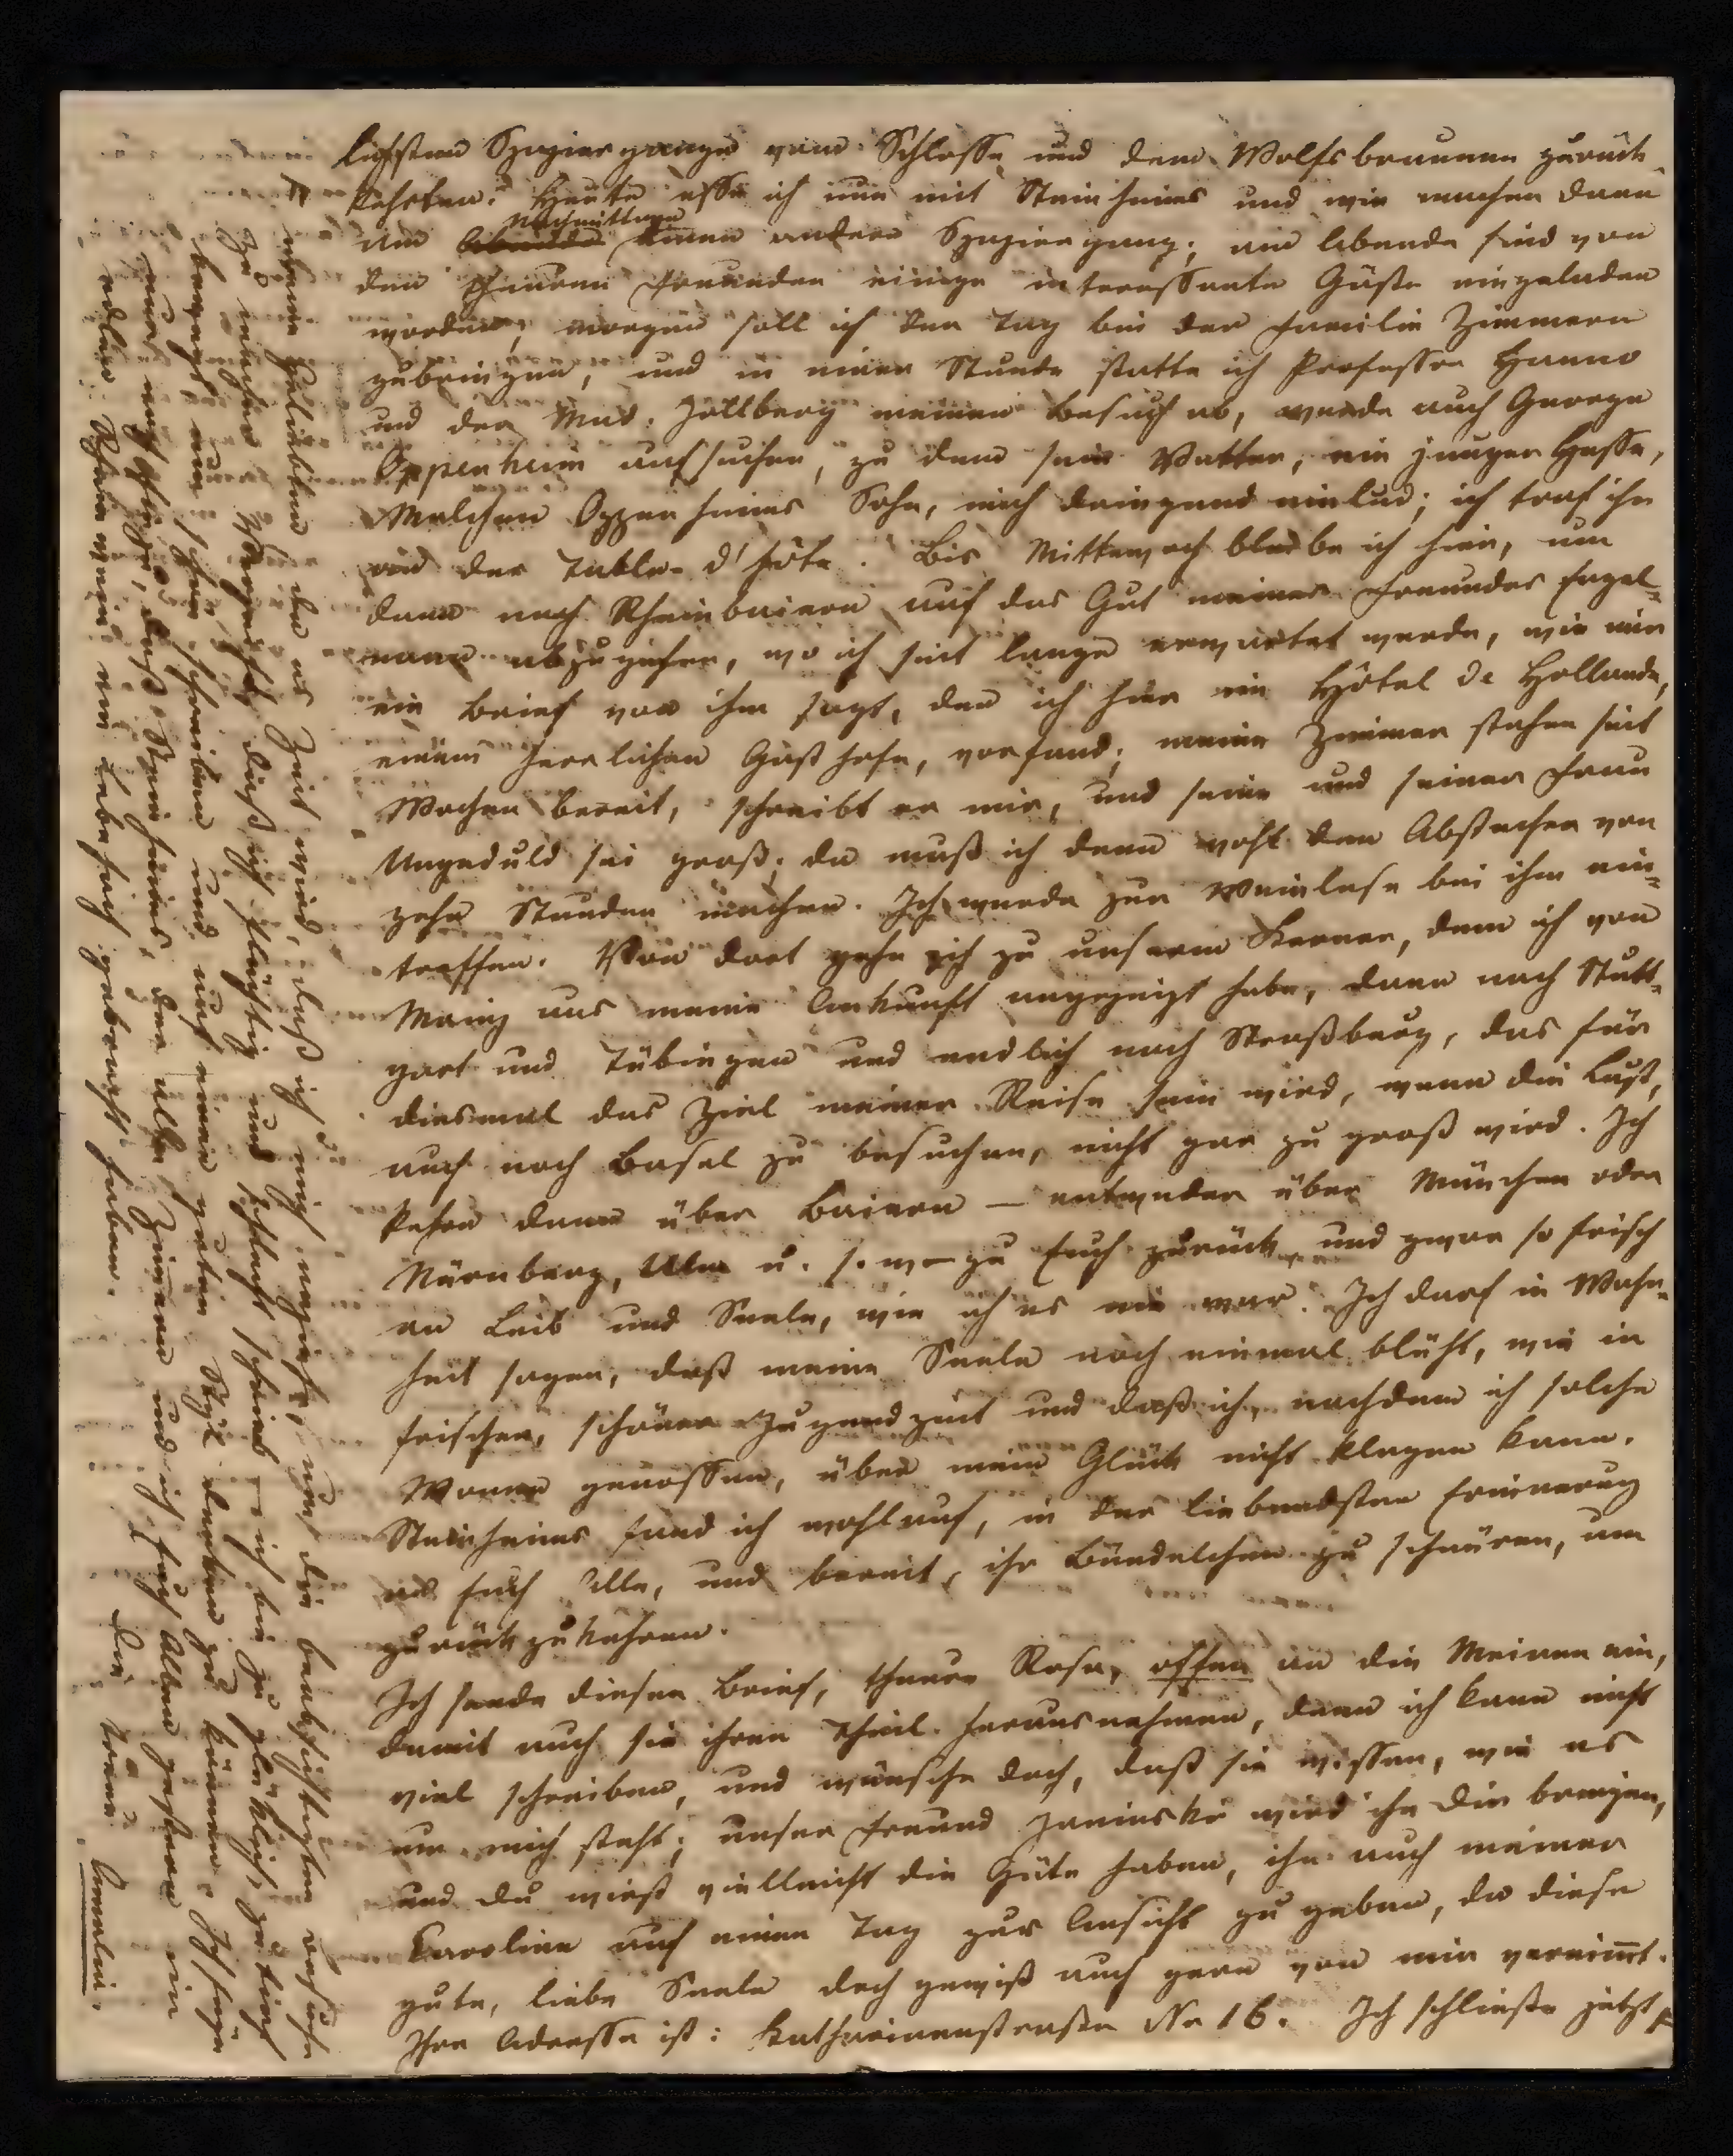 lichsten Spaziergange vom Schlosse und dem Wolfsbrunnen zurück
kehrten. Heute esse ich nun mit Steinheims und wir machen dann
am Abende Nachmittage einen andern Spaziergang; am Abende sind von
den theuren Freunden einige interessante Gäste eingeladen
worden; morgen soll ich den Tag bei der Familie Zimmern
zubringen, und in einer Stunde statte ich Professor Hanno
und der Mad. Zollberg meinen Besuch ab, werde auch George
Oppenheim aufsuchen, zu dem sein Vetter, ein junger Hesse,
Melchen Oppenheims Sohn, mich dringend einlud; ich traf ihn
an der Table d'hôte. Bis Mittewoch bleibe ich hier, um
dann nach Rheinbaiern auf das Gut meines Freundes Engel-
mann abzugehen, wo ich seit lange erwartet werde, wie mir
ein Brief von ihm sagt, den ich hier im Hôtel de Hollande,
einem herrlichen Gasthofe, vorfand; meine Zimmer stehen seit
Wochen bereit, schreibt er mir, und seine und seiner Frau
Ungeduld sei groß; da muß ich denn wohl den Abstecher von
zehn Stunden machen. Ich werde zur Weinlese bei ihm ein-
treffen. Von dort gehe ich zu unserm Kerner, dem ich von
Mainz aus meine Ankunft angezeigt habe, dann nach Stutt-
gart und Tübingen und endlich nach Straßburg, das für
diesmal das Ziel meiner Reise sein wird, wenn die Lust,
auch noch Basel zu besuchen, nicht gar zu groß wird. Ich
kehre dann über Baiern — entweder über München oder
Nürnberg, Ulm u. s. w — zu Euch zurück, und zwar so frisch
an Leib und Seele, wie ich es nie war. Ich darf in Wahr-
heit sagen, daß meine Seele noch einmal blüht, wie in
frischer, schöner Jugendzeit und daß ich, nachdem ich solche
Wonne genossen, über mein Glück nicht klagen kann.
Steinheims fand ich wohlauf, in der liebendsten Erinnerung
an Euch Alle, und bereit, ihr Bündelchen zu schnüren, um
zurückzukehren.
Ich sende diesen Brief, theure Rosa, offen an die Meinen ein,
damit auch sie ihren Theil herausnehmen, denn ich kann nicht
viel schreiben, und wünsche doch, daß sie wissen, wie es
um mich steht; unser Freund Janinski wird ihn Dir bringen,
und Du wirst vielleicht die Güte haben, ihn auch meiner
Caroline auf einen Tag zur Ansicht zu geben, da diese
gute, liebe Seele doch gewiß auch gern von mir vernimt.
Ihre Adresse ist: Catharinenstraße No 16. Ich schließe jetzt
meine Geliebten da es Zeit wird, daß ich mich anziehe, um die beabsichtigten Besuche
zu machen. Verzeiht, daß ich flüchtig und schlecht schrieb — ich bin zu glücklich, zu tief
bewegt um schön schreiben und auf einen guten Styl denken zu können. Ich füge
nur noch hinzu, daß Steinheims, der alte Zimern und ich Euch Allen gestern ein
edler Rheinwein ein Lebehoch gebracht haben. Die treue Amalia.